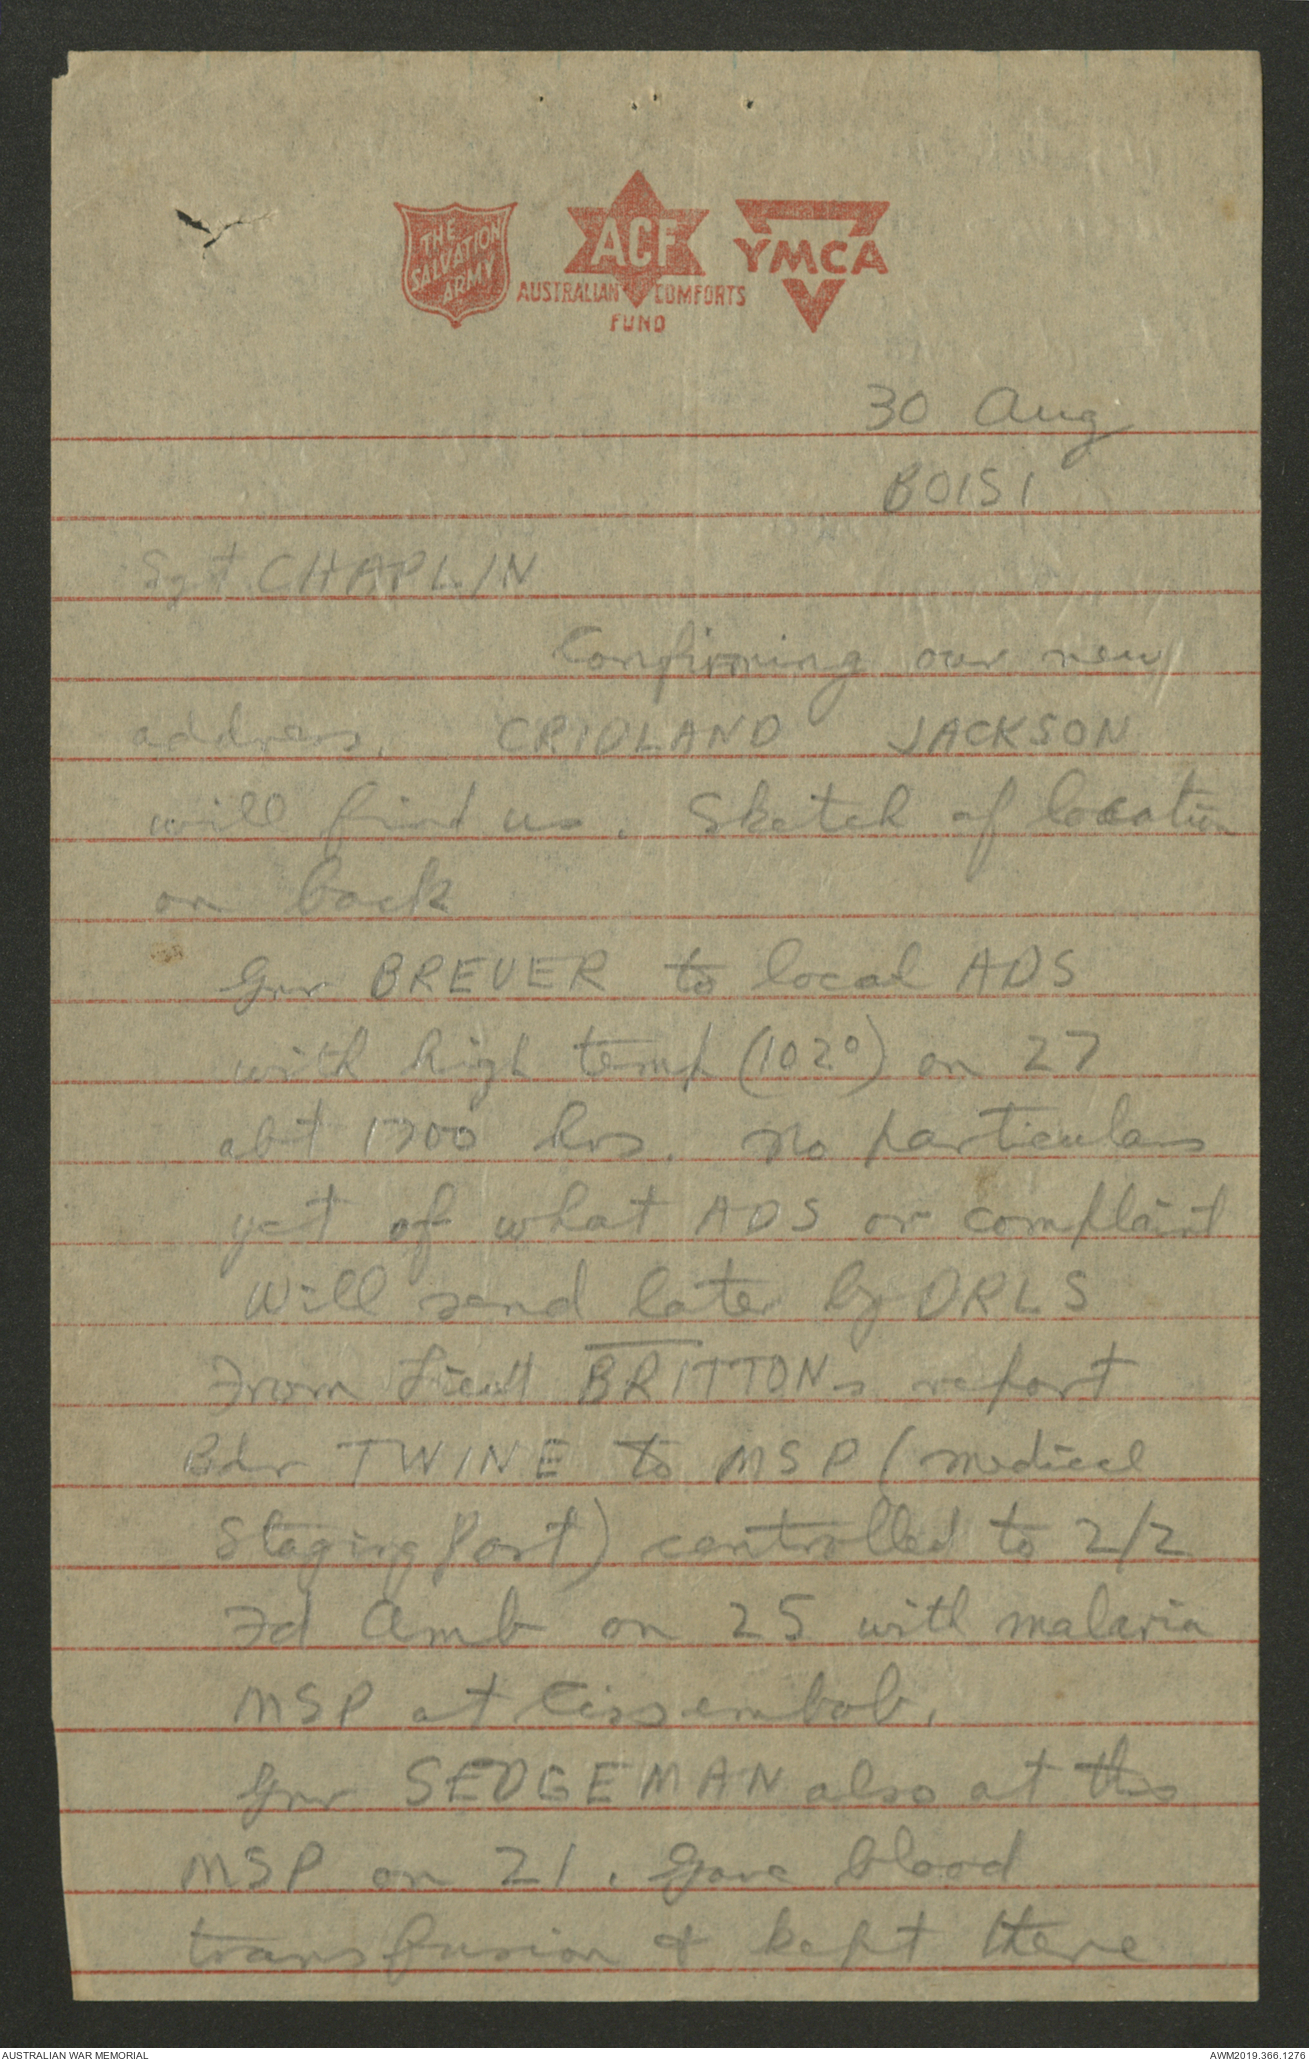 THE
SALVATION
ARMY
ACF
AUSTRALIAN COMFORTS
FUND
YMCA
30 Aug
BOISI
Sgt CHAPLIN
Confirming our new
address. CRIDLAND JACKSON
will find us. Sketch of location
on back
Gnr BREUER to local ADS
with high temp (102°) on 27
abt 1700 hrs. No particulars
yet of what ADS or complaint
Will send later by DRLS
From Lieut BRITTONs report
Bdr TWINE to MSP (medical
Staging Post) controlled to 2/2
Fd Amb on 25 with malaria
MSP at
Gnr SEDGEMAN also at this
MSP on 21. Gave blood
transfusion & kept there
AUSTRALIAN WAR MEMORIAL
AWM2019.366.1276